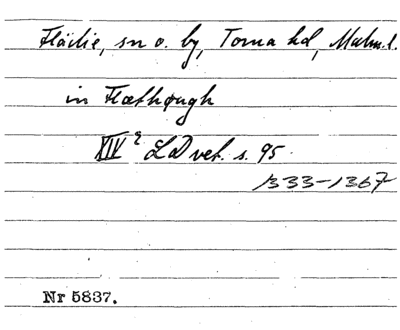 Fläckie, sn o. by, Torna hd, Malm. l.
in Flæthøugh
XIV² LD vet. s. 95
1333-1367
Nr 5837.